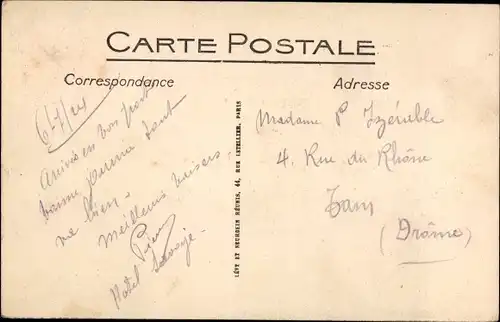 CARTE POSTALE
Correspondance
Adresse
6-7/24
Arrivés en bon port
bonne tout
va bien.
Meilleurs baisers
Pierre
Hotel
LÉVY ET NEURDEIN RÉUNIS, 44, RUE LETELLIER, PARIS
Madame P Izérable
4. Rue du Rhône
Tain
(Drôme)